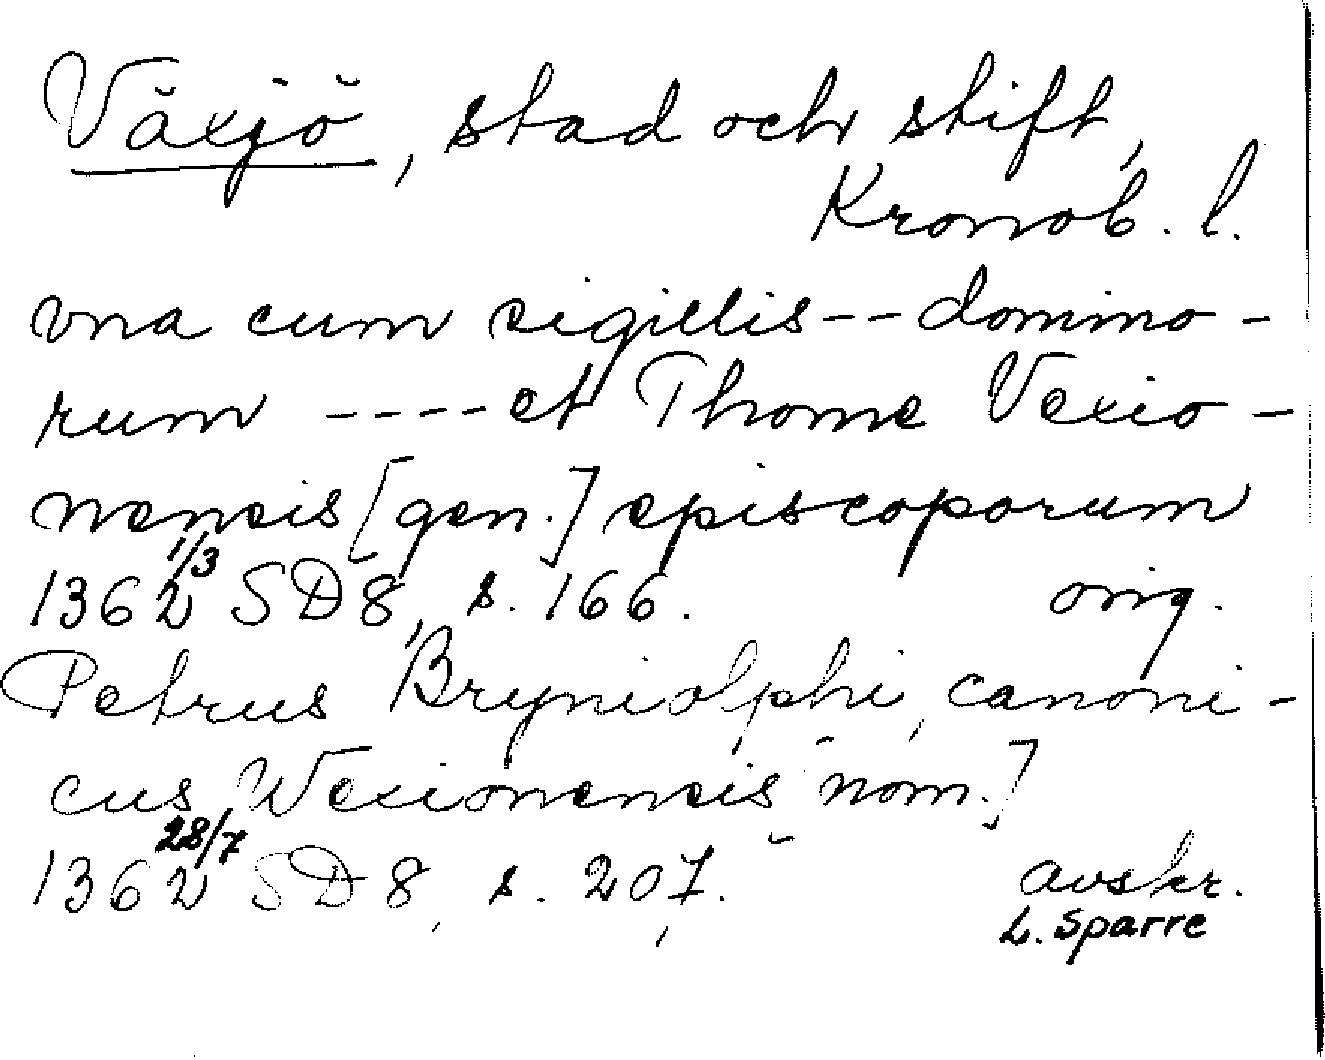 Växjö, stad och stift,
Kronob. l.
vna cum sigillis -- domino-
rum ---- et Thome Vexio-
nensis [gen.] episcoporum
1362 1/3 SD 8, s. 166. orig.
Petrus Bryniolphi, canoni-
cus Wexionensis [nom.]
1362 28/7 SD 8, s. 207. avskr.
L. Sparre